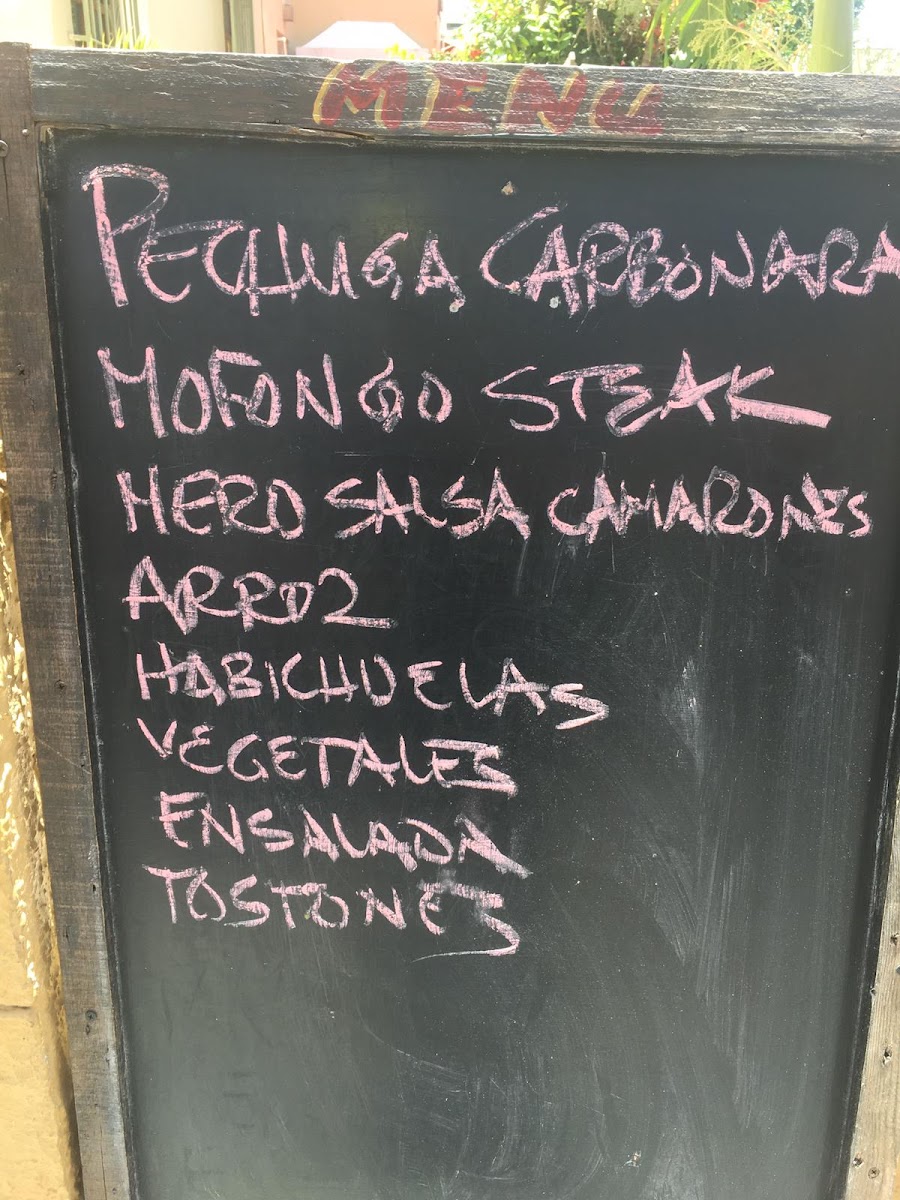 MENU
PECHUGA CARBONARA
MOFONGO STEAK
MERO SALSA CAMARONES
ARROZ
HABICHUELAS
VEGETALES
ENSALADA
TOSTONES